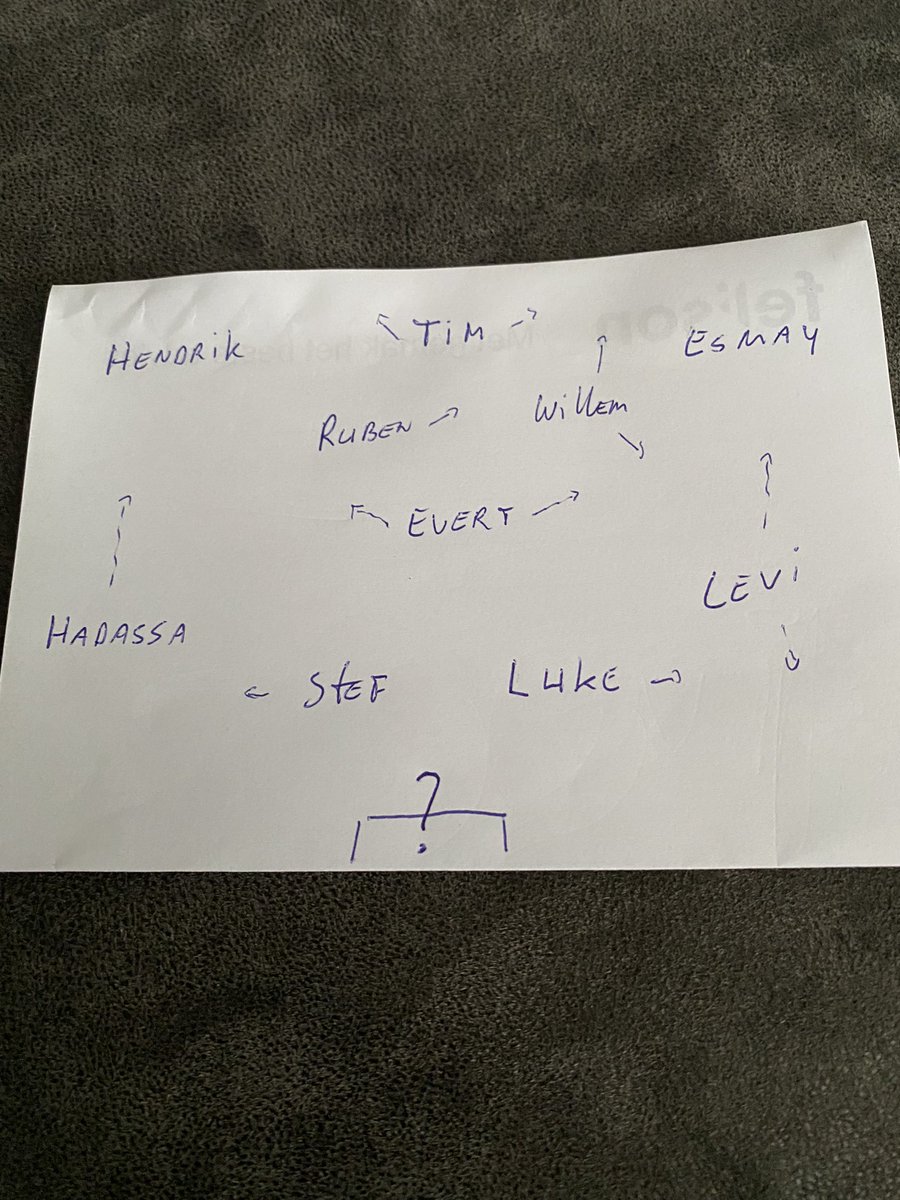 HENDRIK TIM ESMAY
RUBEN Willem
EVERT
LEVi
HADASSA
StEF LUKE
?
felison